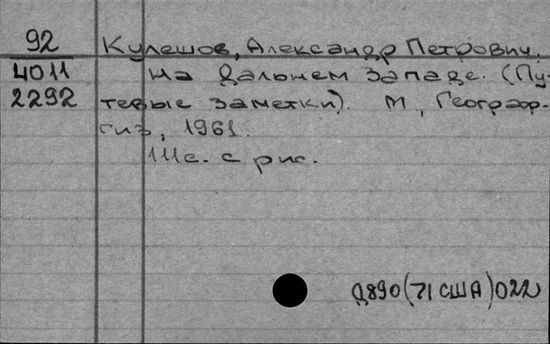 92 Кулешов, Александр Петрович.
4011 На Дальнем Западе. (Пу-
2292 тевые заметки). М., Географ-
гиз, 1961.
111с. с рис.
Д890(71США)022